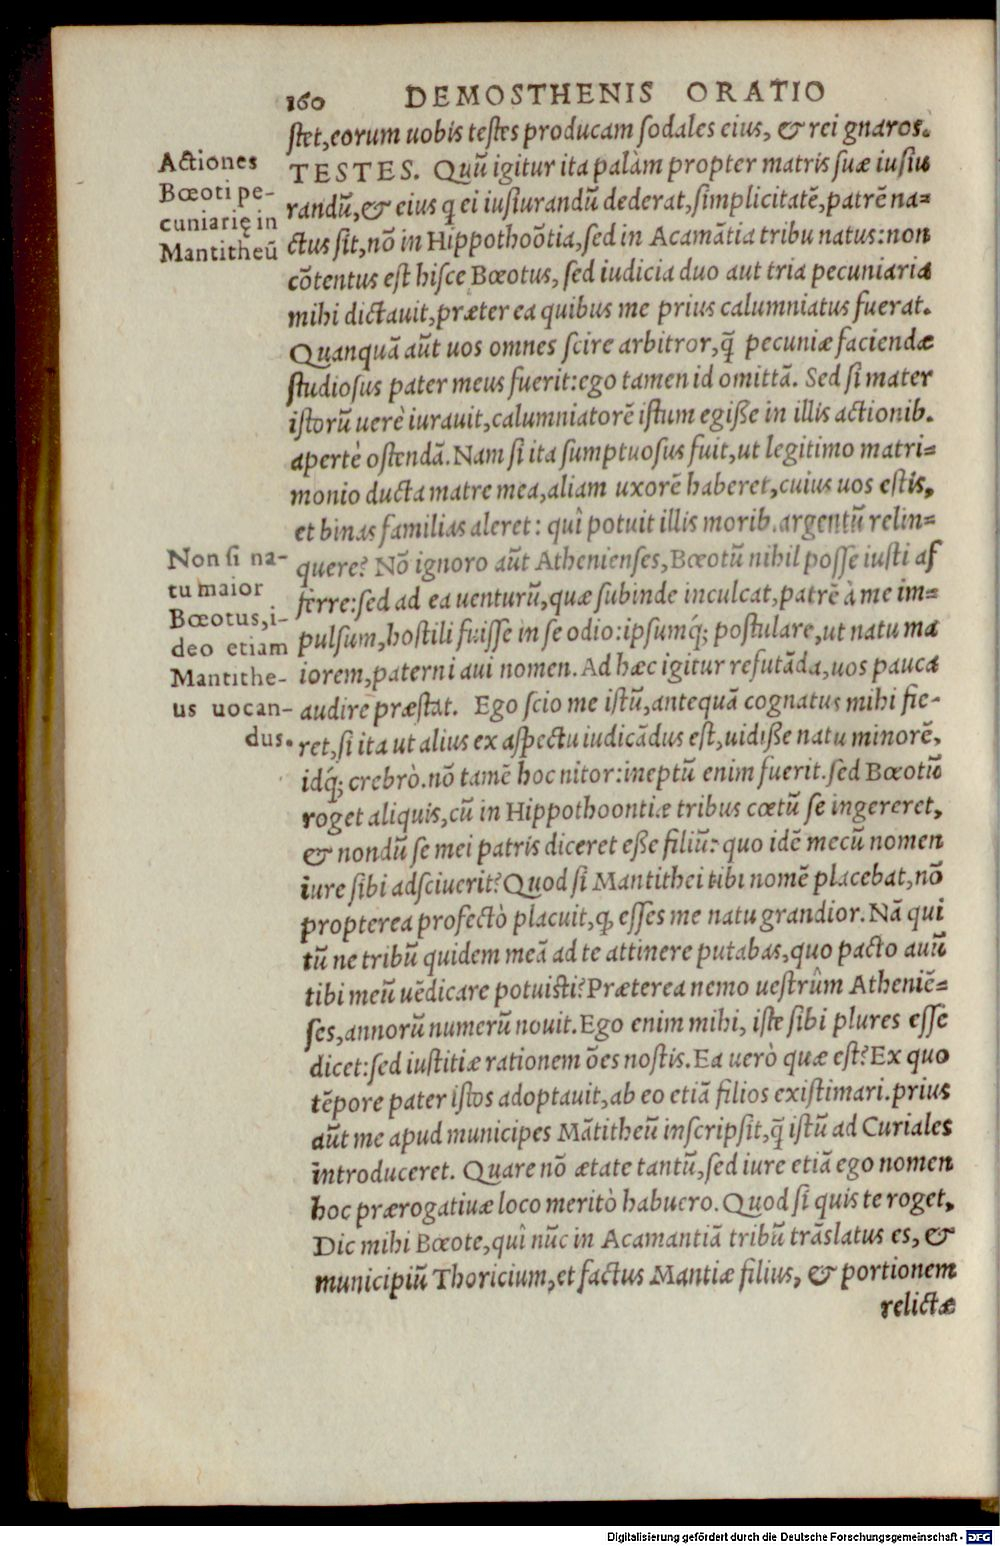 160 DEMOSTHENIS ORATIO
stet,eorum uobis testes producam sodales eius, & rei gnaros.
TESTES. Quū igitur ita palàm propter matris suæ iusiu
randū,& eius q ei iusiurandū dederat,simplicitatē,patrē na=
ctus sit,nō in Hippothoōtia,sed in Acamātia tribu natus:non
cōtentus est hisce Bœotus, sed iudicia duo aut tria pecuniaria
mihi dictauit,præter ea quibus me prius calumniatus fuerat.
Quanquā aūt uos omnes scire arbitror,q̄ pecuniæ faciendæ
studiosus pater meus fuerit:ego tamen id omittā. Sed si mater
istorū uerè iurauit,calumniatorē istum egisse in illis actionib.
apertè ostendā. Nam si ita sumptuosus fuit,ut legitimo matri=
monio ducta matre mea,aliam uxorē haberet,cuius uos estis,
et binas familias aleret: quî potuit illis morib.argentū relin=
quere? Nō ignoro aūt Athenienses,Bœotū nihil posse iusti af
ferre:sed ad ea uenturū,quæ subinde inculcat,patrē à me im=
pulsum,hostili fuisse in se odio:ipsumq́; postulare,ut natu ma
iorem,paterni aui nomen. Ad hæc igitur refutāda,uos pauca
audire præstat. Ego scio me istū,antequā cognatus mihi fie-
ret,si ita ut alius ex aspectu iudicādus est,uidisse natu minorē,
idq́; crebrò.nō tamē hoc nitor:ineptū enim fuerit.sed Bœotū
roget aliquis,cū in Hippothoontiæ tribus cœtū se ingereret,
& nondū se mei patris diceret esse filiū: quo idē mecū nomen
iure sibi adsciuerit? Quod si Mantithei tibi nomē placebat,nō
propterea profectò placuit,q esses me natu grandior. Nā qui
tū ne tribū quidem meā ad te attinere putabas,quo pacto auū
tibi meū uēdicare potuisti? Præterea nemo uestrûm Atheniē=
ses,annorū numerū nouit. Ego enim mihi, iste sibi plures esse
dicet:sed iustitiæ rationem ōes nostis. Ea uerò quæ est? Ex quo
tēpore pater istos adoptauit,ab eo etiā filios existimari.prius
aūt me apud municipes Mātitheū inscripsit,q̄ istū ad Curiales
introduceret. Quare nō ætate tantū,sed iure etiā ego nomen
hoc prærogatiuæ loco meritò habuero. Quod si quis te roget,
Dic mihi Bœote,quî nūc in Acamantiā tribū trāslatus es, &
municipiū Thoricium,et factus Mantiæ filius, & portionem
relictæ
Actiones
Bœoti pe-
cuniarię in
Mantitheū
Non si na-
tu maior
Bœotus,i-
deo etiam
Mantithe-
us uocan-
dus.
Digitalisierung gefördert durch die Deutsche Forschungsgemeinschaft - DFG